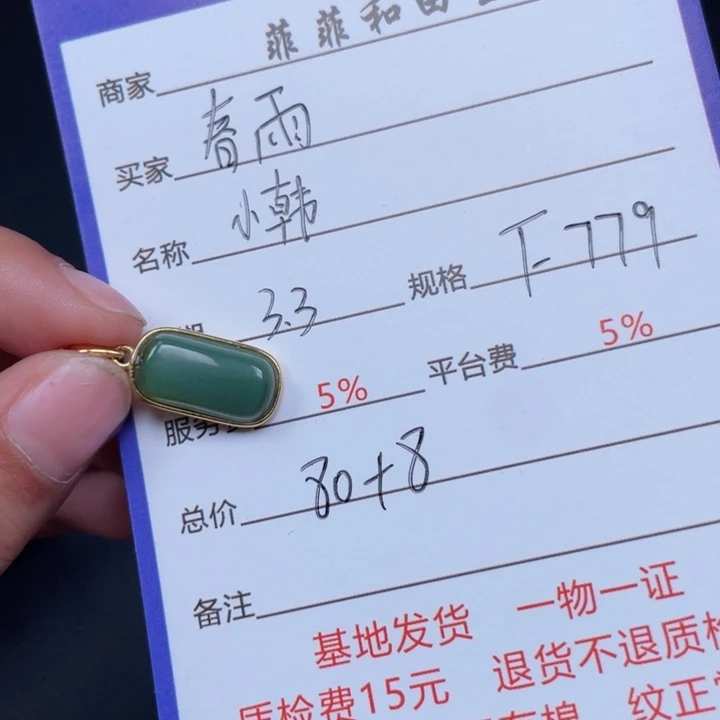 商家 菲菲和田玉
买家 春雨
名称 小韩
期 3.3 规格 T-779
服务费 5% 平台费 5%
总价 80+8
备注
基地发货 一物一证
质检费15元 退货不退质检
有棉 纹正常